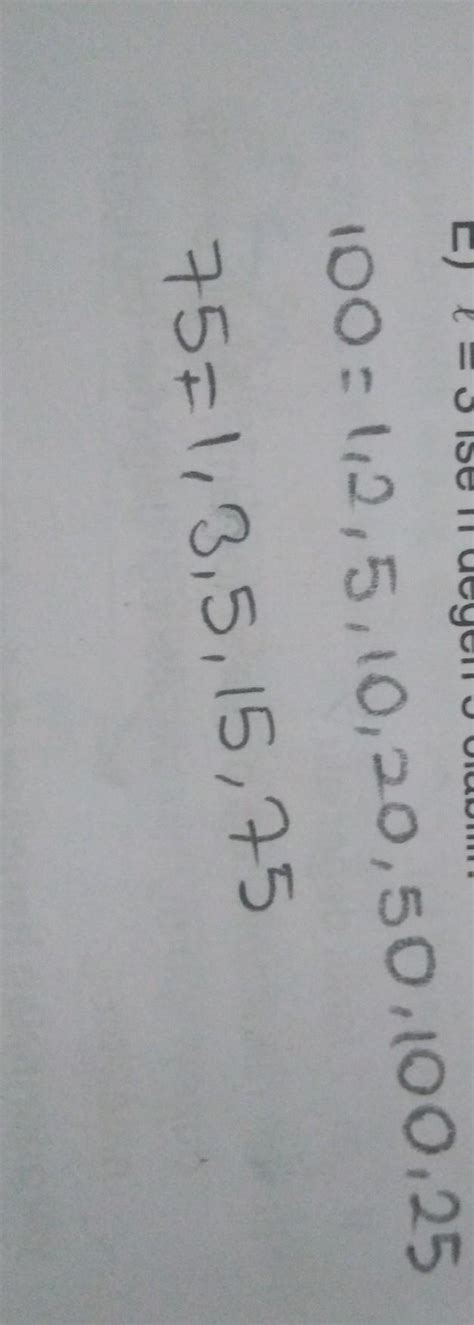 E) ℓ = 3 ise n değeri 5 olabilir.
100 = 1,2,5,10,20,50,100,25
75 = 1,3,5,15,75